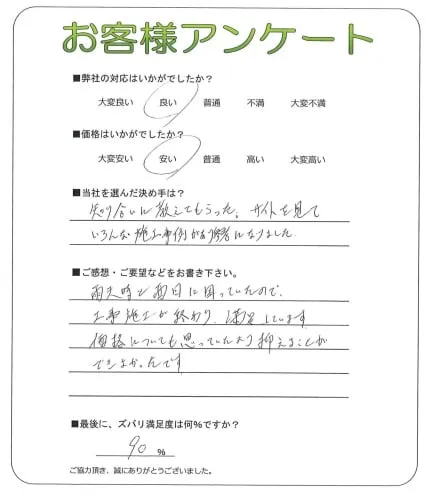 お客様アンケート
■弊社の対応はいかがでしたか？
大変良い 良い 普通 不満 大変不満
■価格はいかがでしたか？
大変安い 安い 普通 高い 大変高い
■当社を選んだ決め手は？
知り合いに教えてもらった。サイトを見て
いろんな施工事例があり参考になりました
■ご感想・ご要望などをお書き下さい。
雨天時と西日に困っていたので、
工事施工が終わり、満足しています
価格についても思っていたより抑えることが
できよかったんです
■最後に、ズバリ満足度は何％ですか？
90 ％
ご協力頂き、誠にありがとうございました。